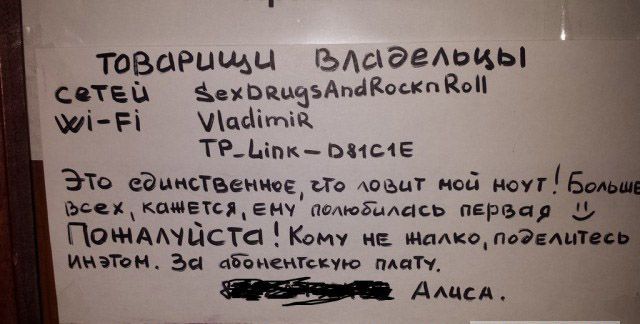 товарищи владельцы
сетей SexDRugsAndRocknRoll
Wi-Fi VladimiR
TP_Link-D81C1E
Это единственное, что ловит мой ноут! Больше
всех, кажется, ему полюбилась первая
Пожалуйста! Кому не жалко, поделитесь
инэтом. За абонентскую плату.
Алиса.